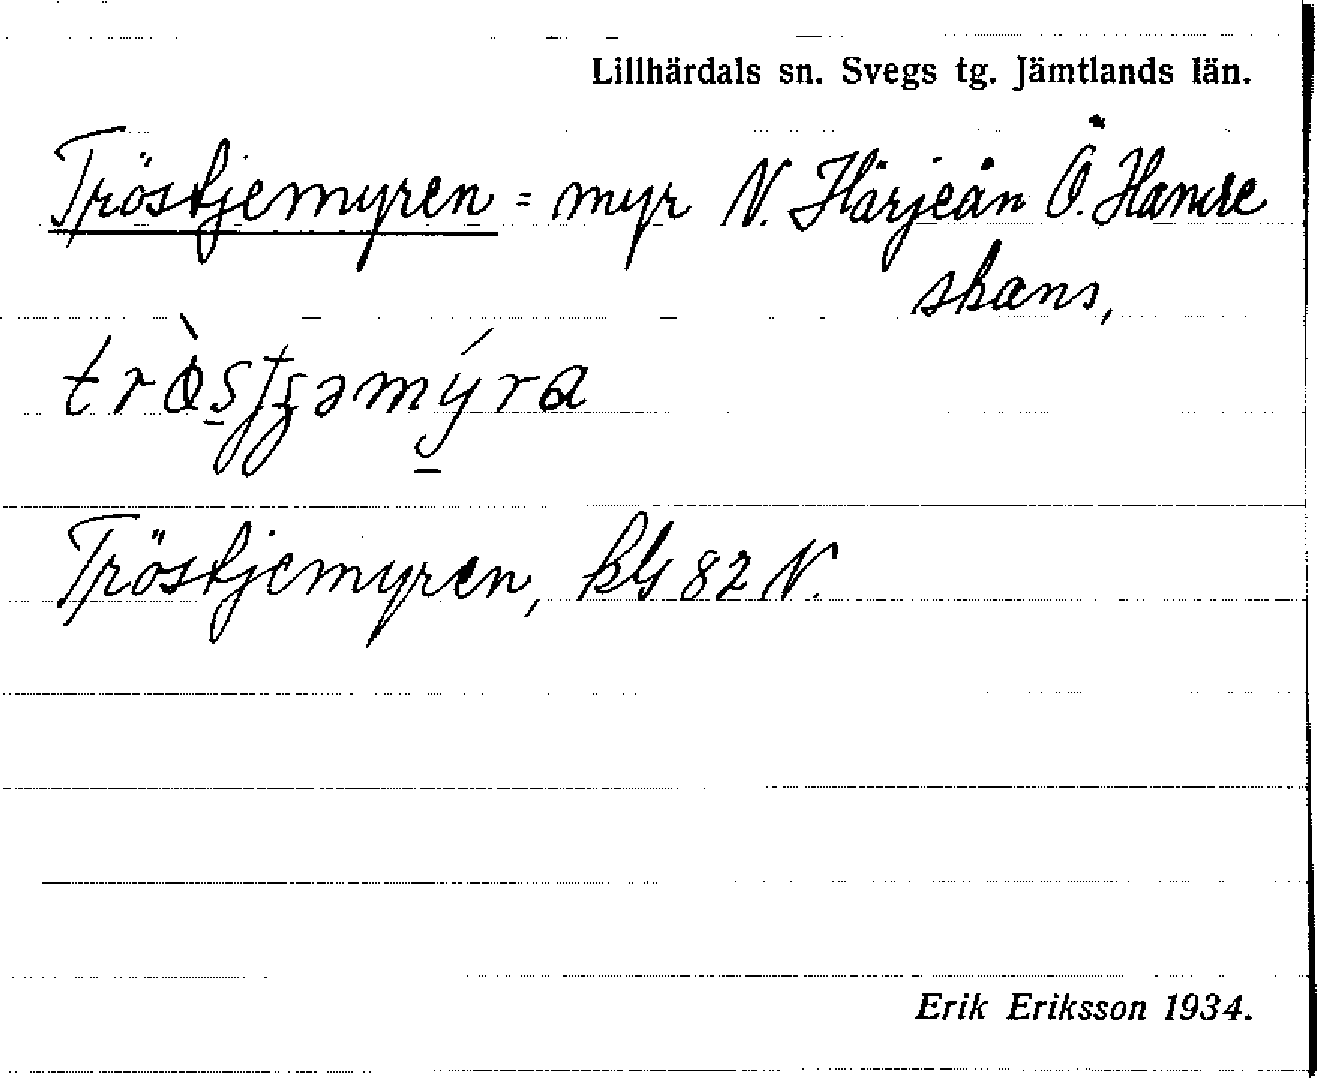 Lillhärdals sn. Svegs tg. Jämtlands län.
Tröstjemyren = myr N. Härjeån Ö. Hamre
skans,
Tröstjemyren, kbl 82 N.
Erik Eriksson 1934.